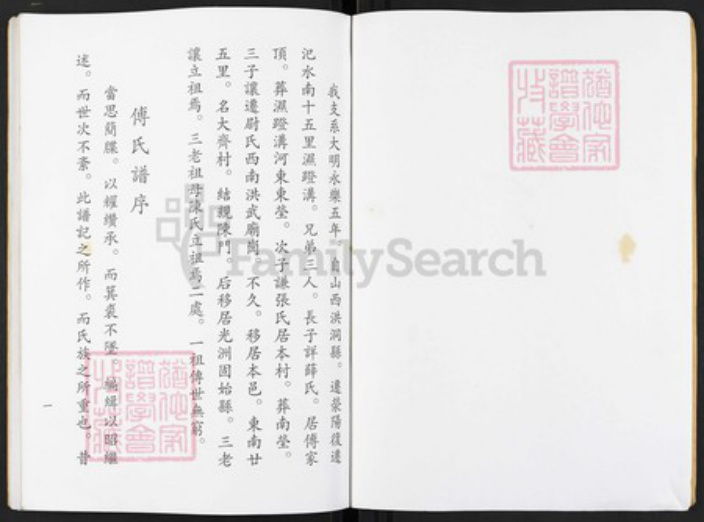 我支系大明永樂五年。自山西洪洞縣。遷滎陽復遷
汜水南十五里濕蹬溝。兄弟三人。長子詳薛氏。居傅家
頂。葬濕蹬溝河東東塋。次子謙張氏居本村。葬南塋。
三子讓遷尉氏西南洪武廟崗。不久。移居本邑。東南廿
五里。名大齊村。結親陳門。后移居光洲固始縣。三老
讓立祖焉。三老祖母陳氏立祖焉二處。一祖傳世無窮。
傅氏譜序
嘗思簡牒。以耀纘承。而箕裘不墜。編緝以昭繼
述。而世次不紊。此譜記之所作。而氏族之所重也。昔
一
猶他家
譜學會
收藏
猶他家
譜學會
收藏
FamilySearch